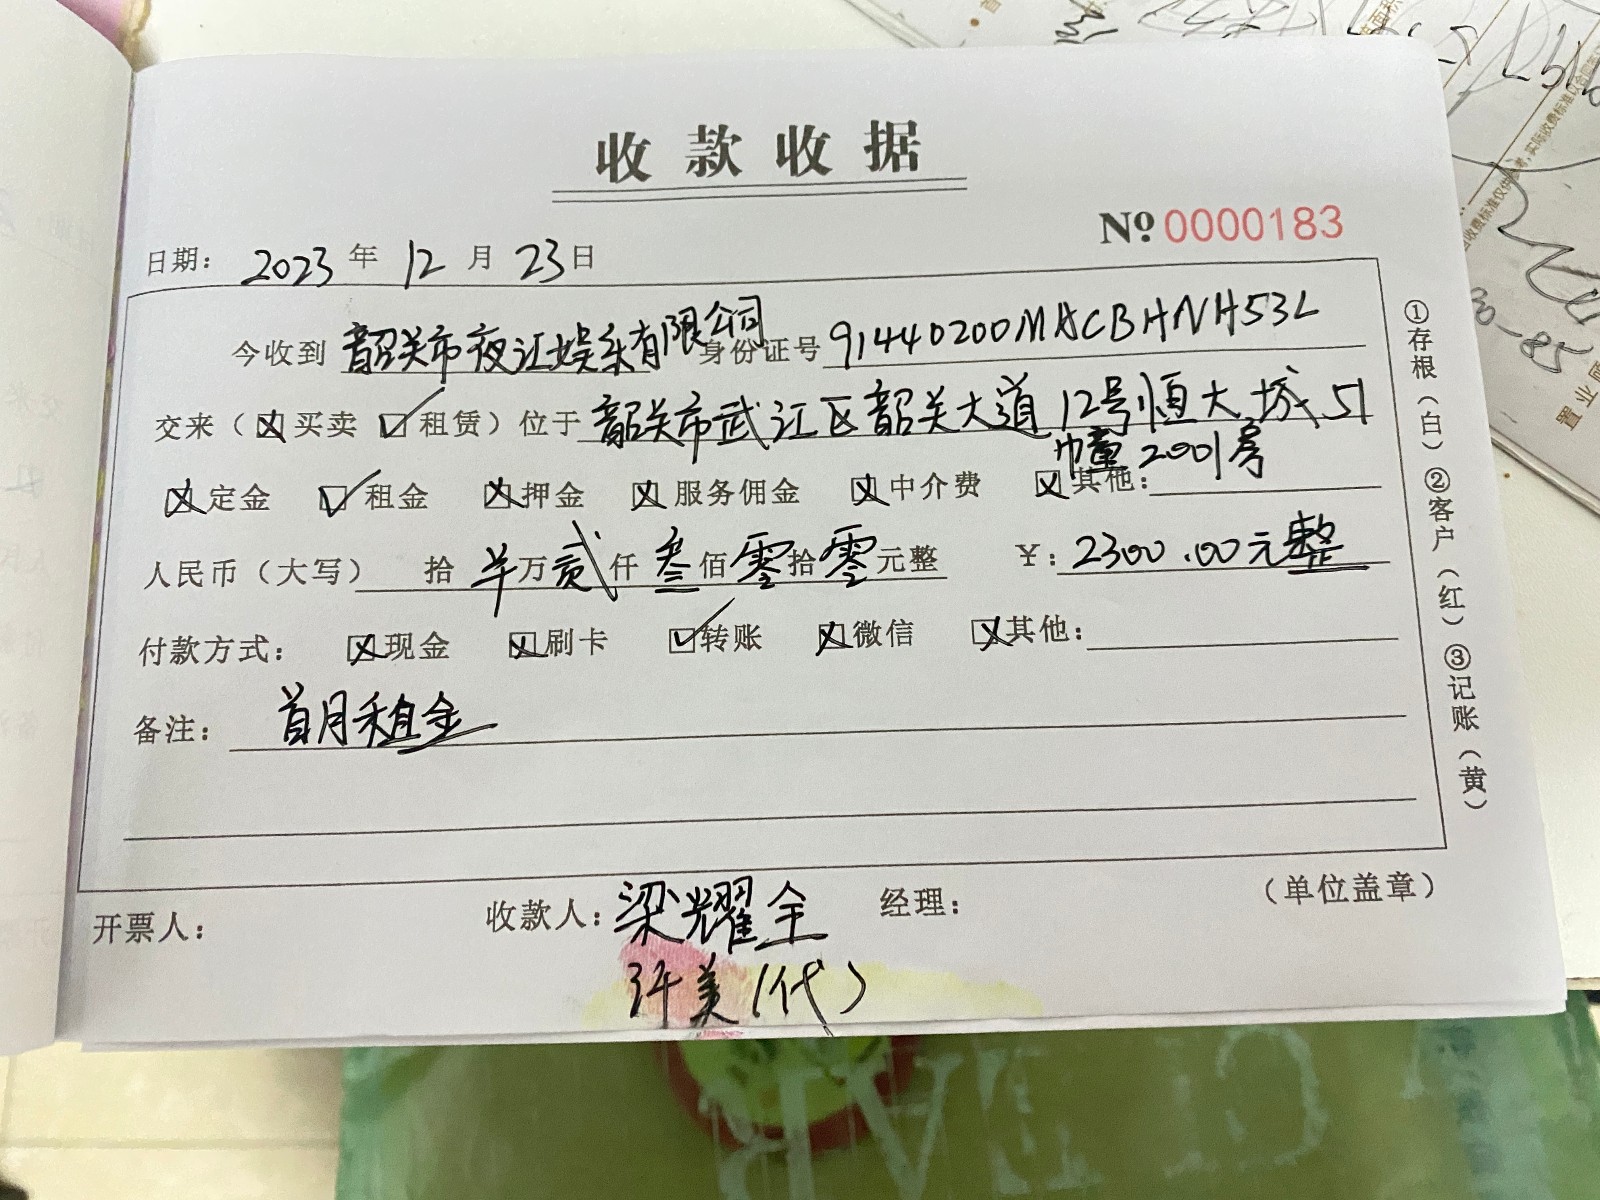 收款收据
№ 0000183
日期： 2023 年 12 月 23 日
今收到 韶关市夜江娱乐有限公司 身份证号 91440200MACBHNH53L
交来（☒买卖 ☑租赁）位于 韶关市武江区韶关大道12号恒大城51
幢2001房
☒定金 ☑租金 ☒押金 ☒服务佣金 ☒中介费 ☒其他：
人民币（大写） 拾 羊 万 贰 仟 叁 佰 零 拾 零 元整 ¥：2300.00元整
付款方式： ☒现金 ☒刷卡 ☑转账 ☒微信 ☒其他：
备注： 首月租金
①存根（白）②客户（红）③记账（黄）
开票人： 收款人：梁耀全 经理： （单位盖章）
许美（代）
置业顾